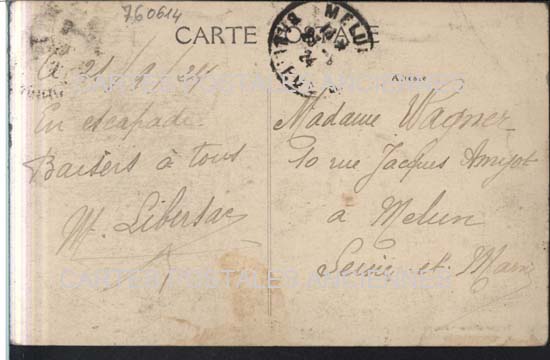 760614
CARTE POSTALE
MELUN
Adresse
21/9/24
En escapade
Baisers à tous
M. Libersac
Madame Wagner
10 rue Jacques Amyot
à Melun
Seine et Marne
CARTES POSTALES ANCIENNES
CARTES POSTALES ANCIENNES